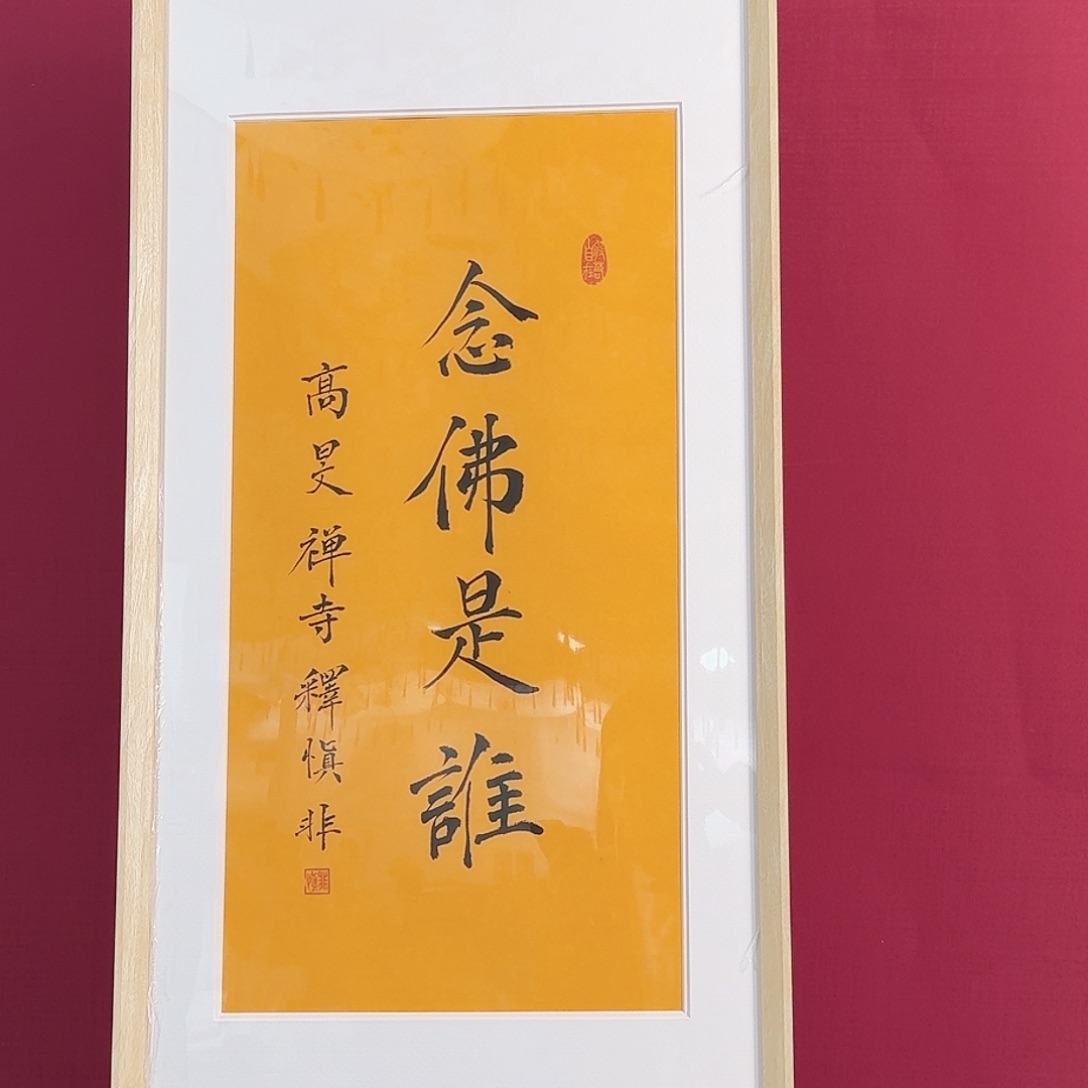 念佛是誰
高旻禅寺釋慎非